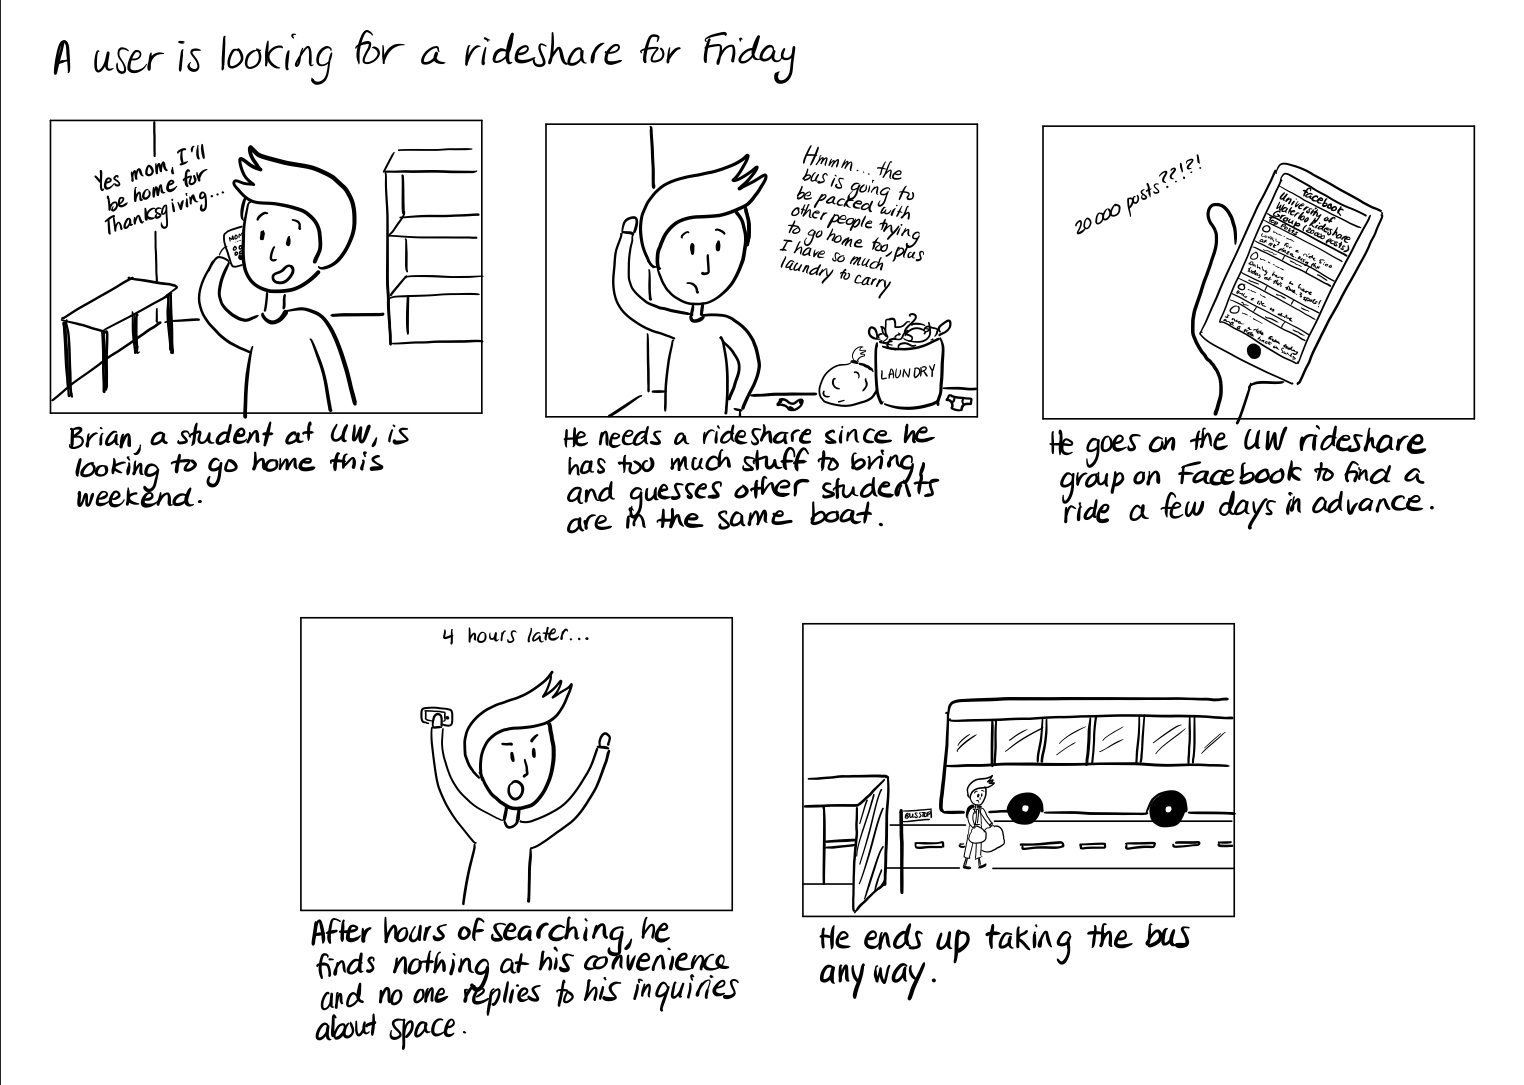 A user is looking for a rideshare for Friday
Yes mom, I'll
be home for
Thanksgiving...
MOM
Brian, a student at UW, is
looking to go home this
weekend.
Hmmm... the
bus is going to
be packed with
other people trying
to go home too, plus
I have so much
laundry to carry
LAUNDRY
He needs a rideshare since he
has too much stuff to bring,
and guesses other students
are in the same boat.
20 000 posts??!?!
facebook
University of
Waterloo Rideshare
Group (20000 posts)
Looking for a ride from
He goes on the UW rideshare
group on Facebook to find a
ride a few days in advance.
4 hours later...
After hours of searching, he
finds nothing at his convenience
and no one replies to his inquiries
about space.
BUS STOP
He ends up taking the bus
any way.